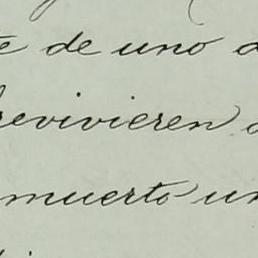 de uno
revivieren
muerto un